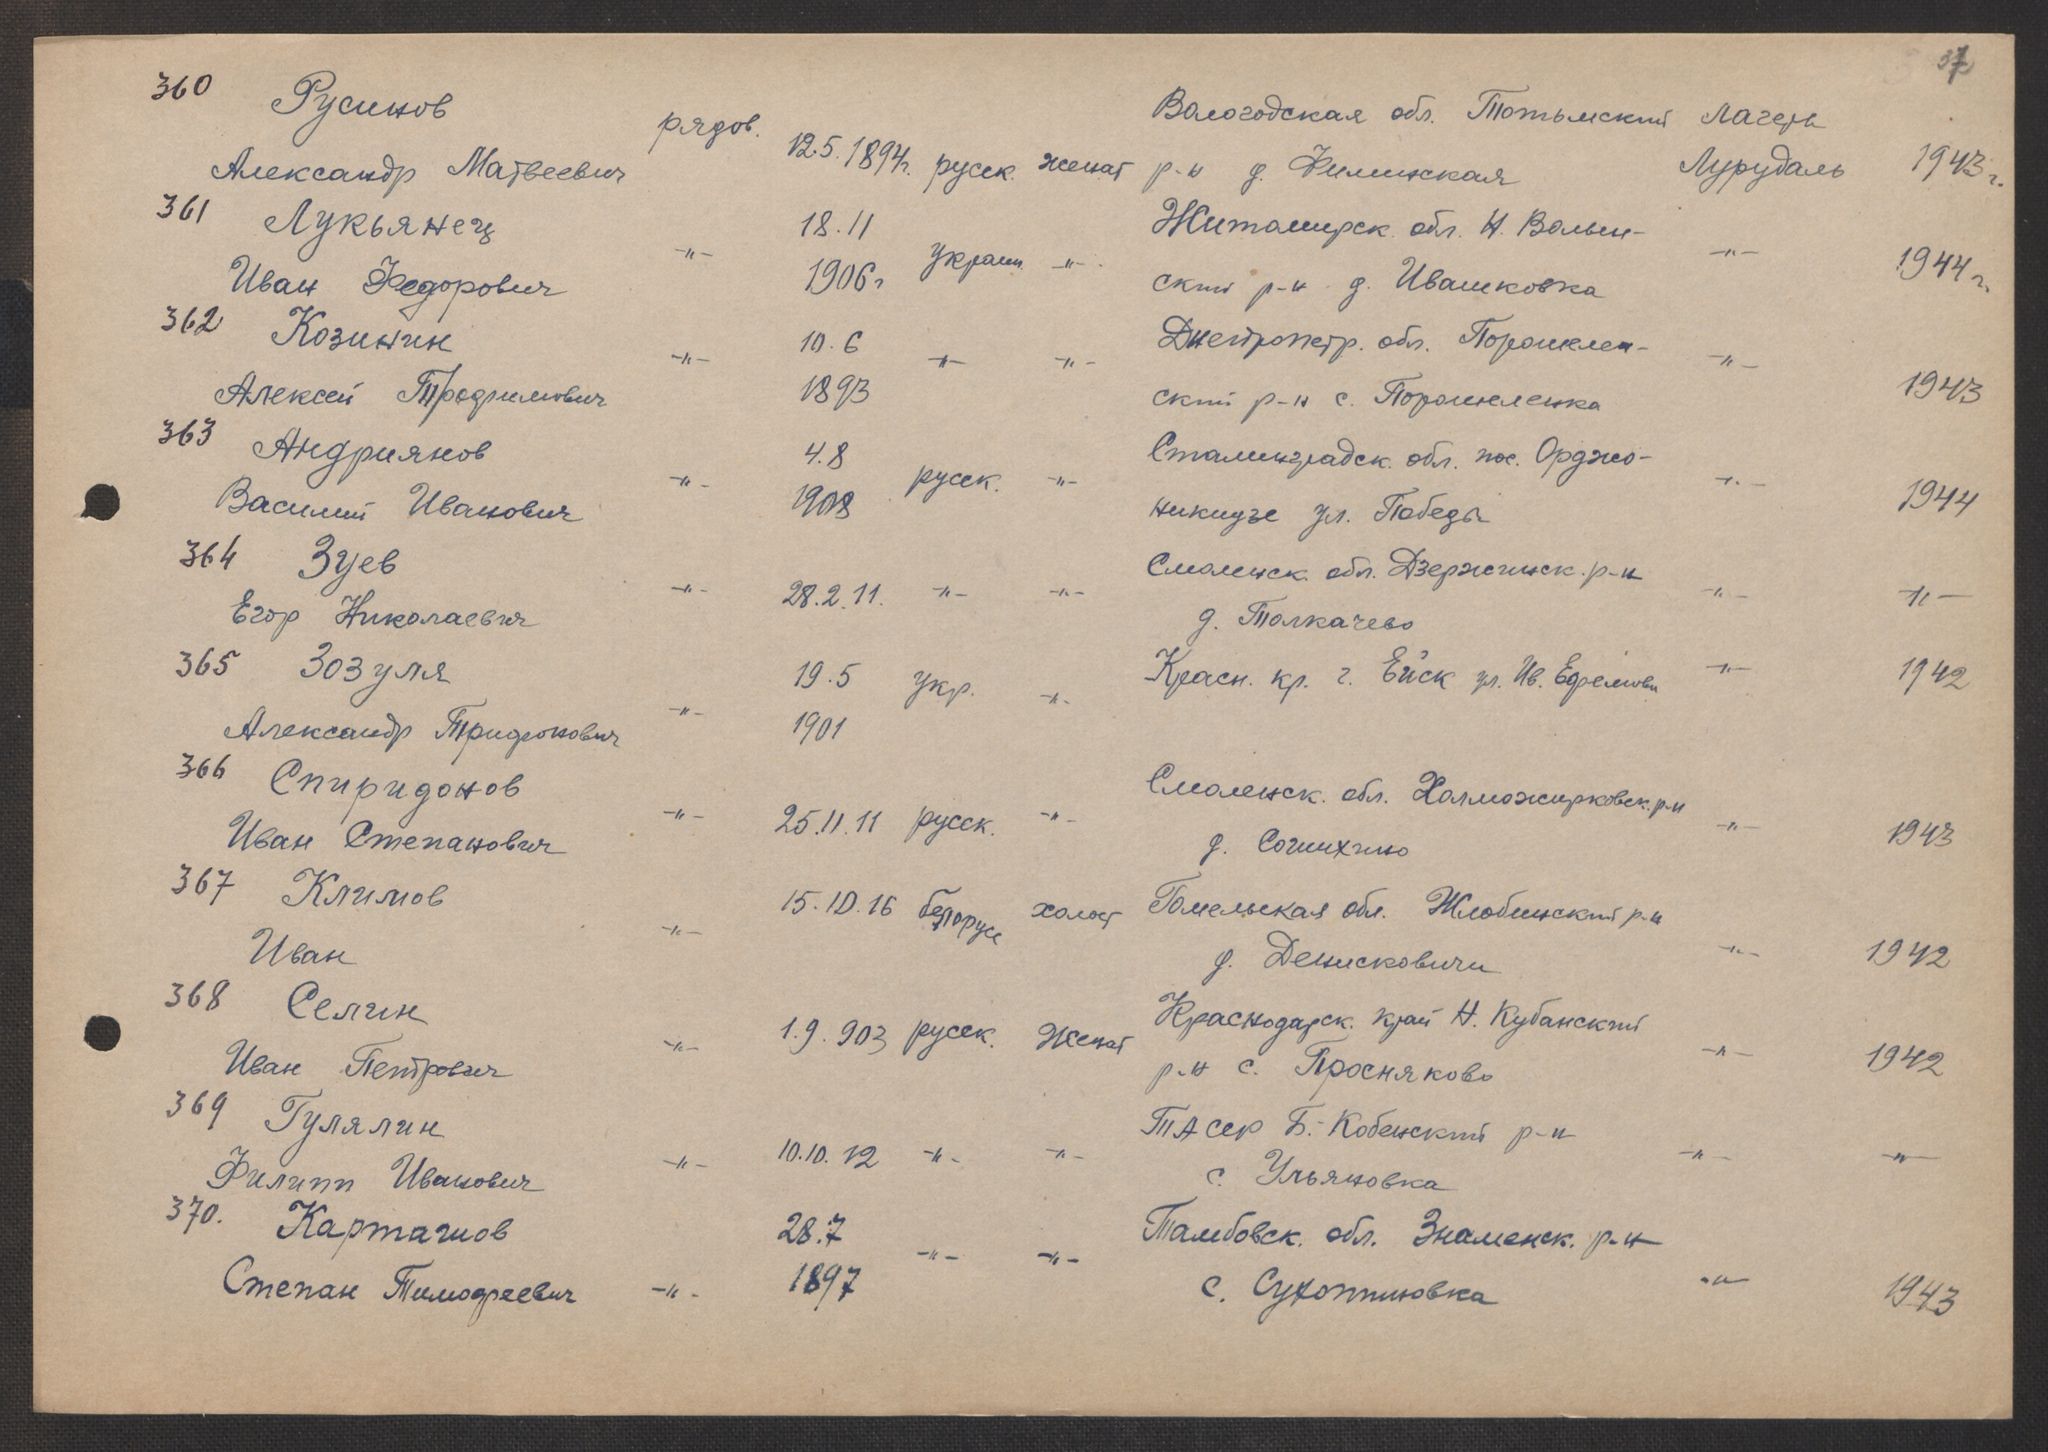 37
360 Русинов рядов. 12.5.1894г. русск. женат Вологодская обл. Тотьмский лагерь
Александр Матвеевич р-н д. Филинская Лурудаль 1943г.
361 Лукьянец -"- 18.11 украин. -"- Житомирск. обл. Н. Волын- -"- 1944г.
Иван Федорович 1906г ский р-н д. Ивашковка
362 Козинин -"- 10.6 -"- -"- Днепропетр. обл. -"- 1943
Алексей Трофимович 1893 ский р-н с.
363 Андриянов -"- 4.8 русск. -"- Сталинградск. обл. пос. Орджо- -"- 1944
Василий Иванович 1908 никидзе ул. Победы
364 Зуев -"- 28.2.11. -"- -"- Смоленск. обл. Дзержинск. р-н -"- -"-
Егор Николаевич д. Толкачево
365 Зозуля -"- 19.5 укр. -"- Красн. кр. г. Ейск ул. Ив. Ефремова -"- 1942
Александр Трифонович 1901
366 Спиридонов -"- 25.11.11 русск. -"- Смоленск. обл. Холможирковск. р-н -"- 1943
Иван Степанович д.
367 Климов -"- 15.10.16 белорусс холост Гомельская обл. Жлобинский р-н -"- 1942
Иван д. Денисковичи
368 Селин -"- 1.9.903 русск. женат Краснодарск. край Н. Кубанский -"- 1942
Иван Петрович р-н с. Просняково
369 Гулялин -"- 10.10.12 -"- -"- ТАССР Б.-Кобенский р-н -"- -"-
Филипп Иванович с. Ульяновка
370. Карташов -"- 28.7 -"- -"- Тамбовск. обл. Знаменск. р-н -"- 1943
Степан Тимофеевич 1897 с.